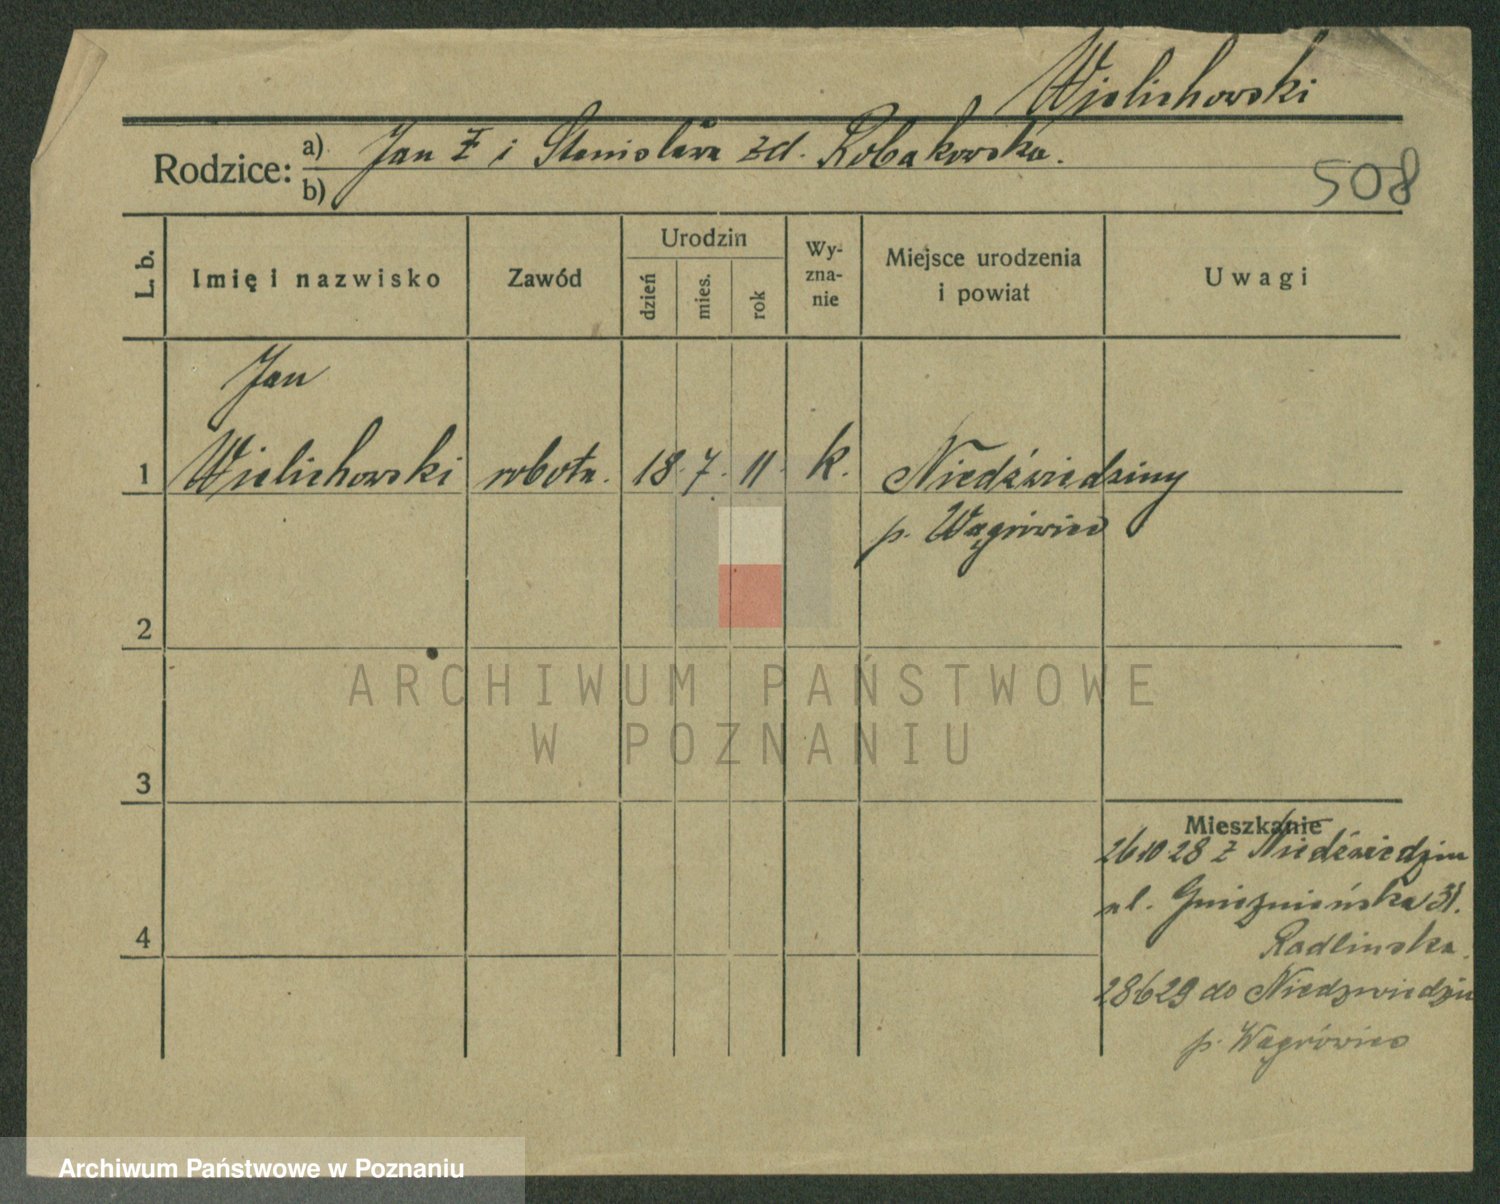 Wielichowski
Rodzice: a) Jan Ż i Stanisława zd. Robakowska.
b)
508
L. b. Imię i nazwisko Zawód Urodzin dzień mies. rok Wy-zna-nie Miejsce urodzenia i powiat Uwagi
Jan
1 Wielichowski robotn. 18. 7. 11. k. Niedźwiedziny
p. Wągrówiec
2
ARCHIWUM PAŃSTWOWE
W POZNANIU
3
Mieszkanie
26 10 28 z Niedźwiedzin
ul. Gnieźnieńska 31.
4
Radlinska.
28 6 29 do Niedzwiedzin
p. Wągrówiec
Archiwum Państwowe w Poznaniu